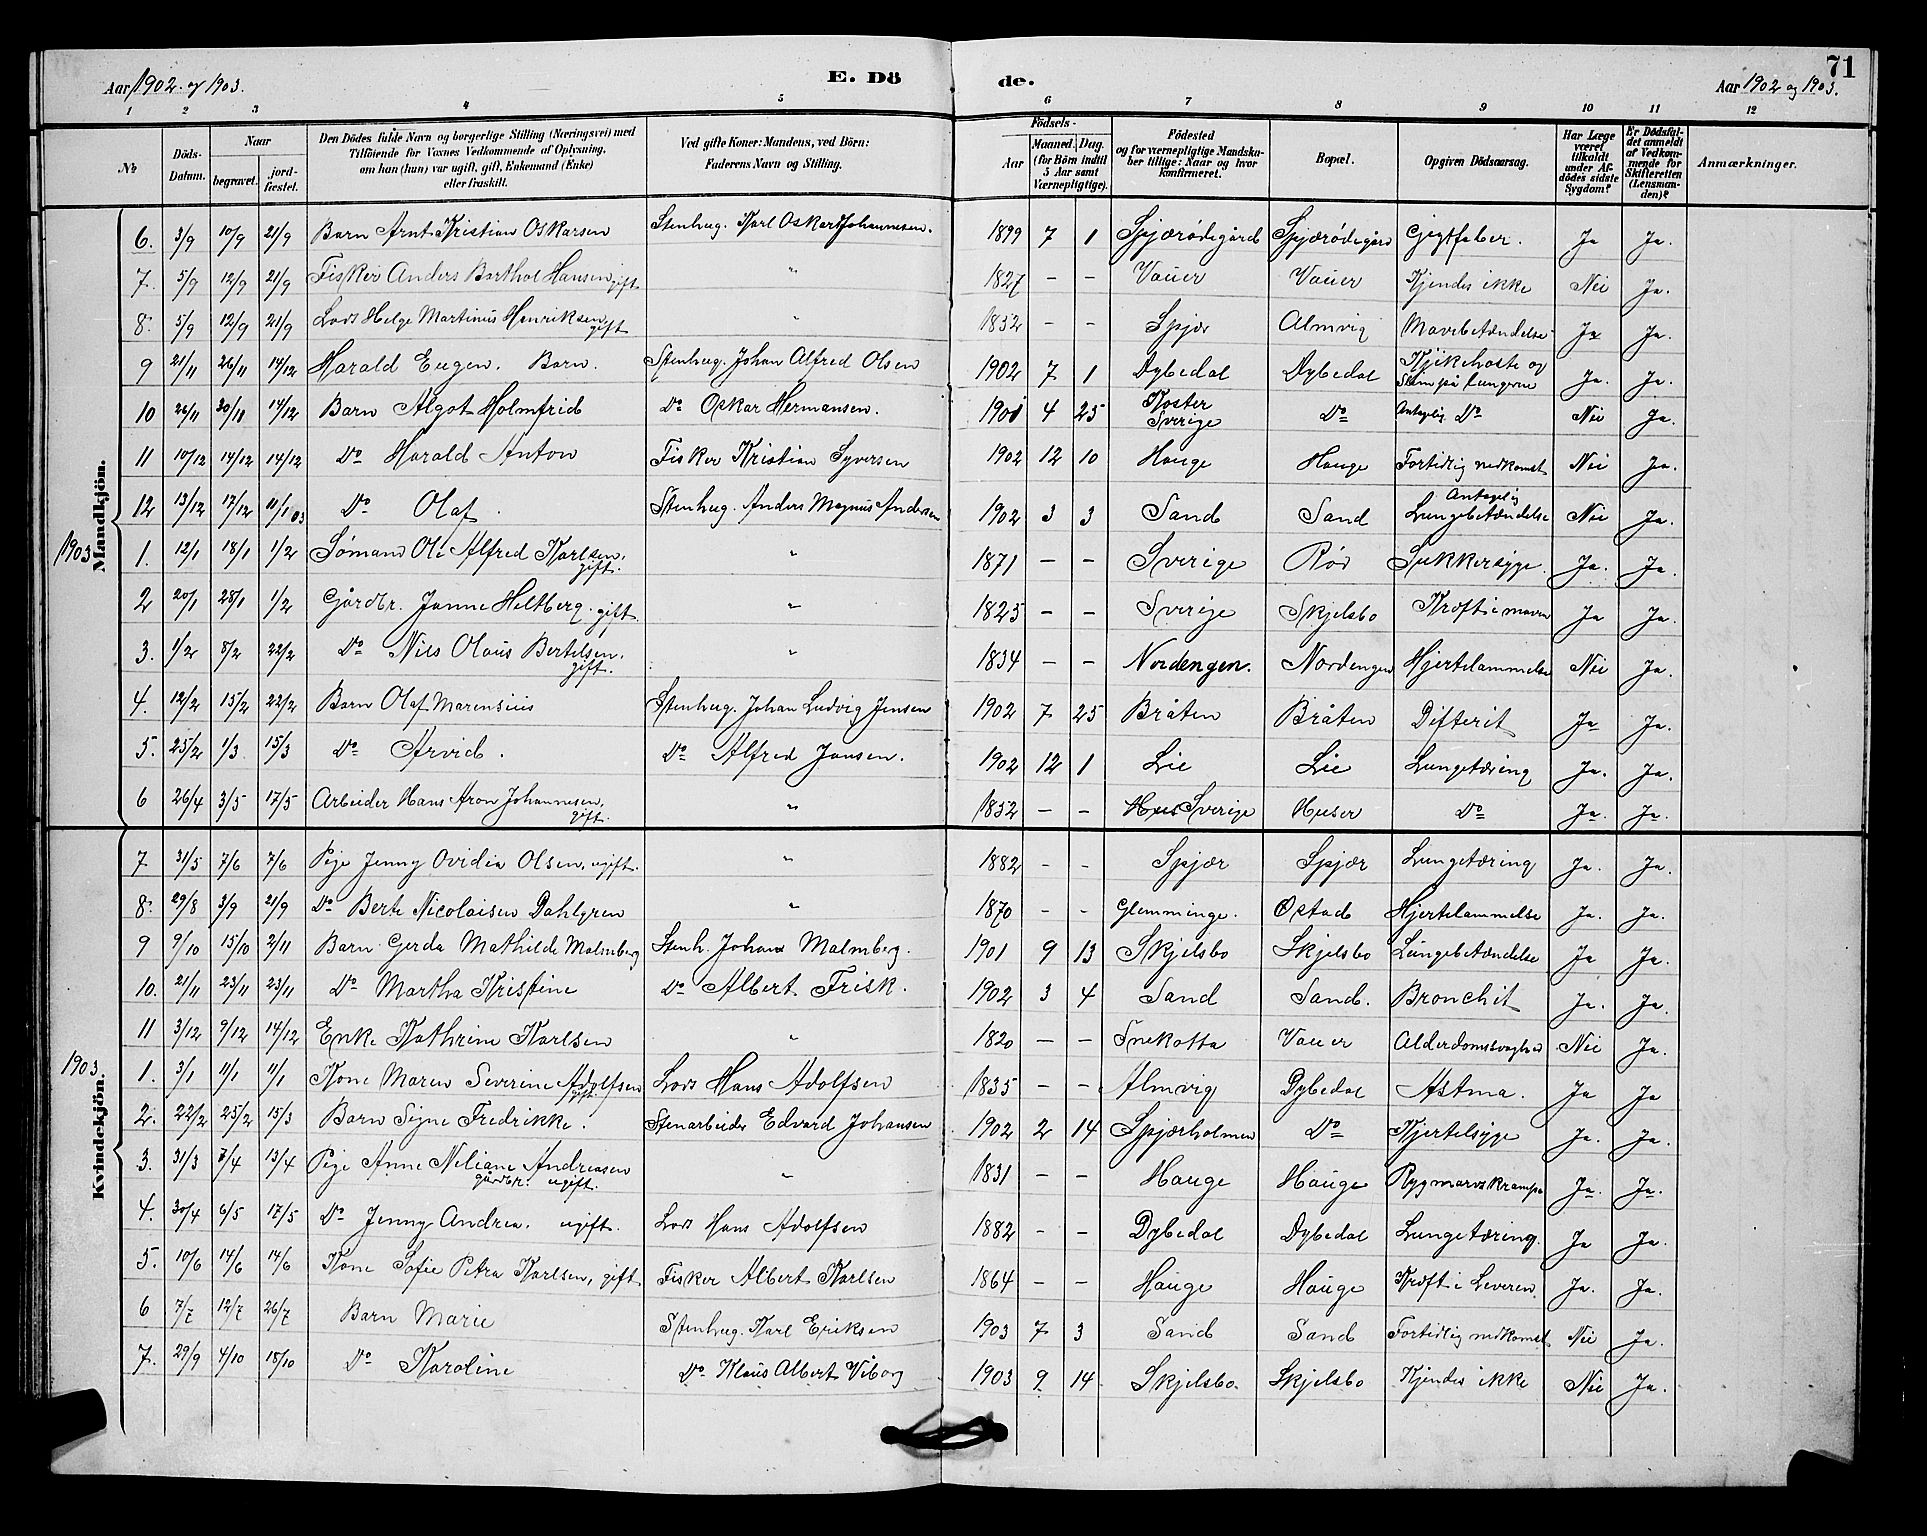 Aar 1902 og 1903.
E. Dö
de.
71
Aar 1902 og 1903.
1 2 3 4 5 6 7 8 9 10 11 12
No
Döds-Datum.
Naar
begravet. jordfæstet.
Den Dödes fulde Navn og borgerlige Stilling (Næringsvei) med
Tilföiende for Voxnes Vedkommende af Oplysning,
om han (hun) var ugift, gift, Enkemand (Enke)
eller fraskilt.
Ved gifte Koner: Mandens, ved Börn:
Faderens Navn og Stilling.
Födsels-
Aar Maaned. Dag.
(for Börn indtil
5 Aar samt
Værnepligtige).
Födested
og for værnepligtige Mandskaber tillige: Naar og hvor konfirmeret.
Bopæl.
Opgiven Dödsaarsag.
Har Læge været tilkaldt under Afdödes sidste Sygdom?
Er Dödsfaldet anmeldt af Vedkommende for Skifteretten (Lensmanden)?
Anmærkninger.
Mandkjön.
6. 3/9 10/9 21/9 Barn Arnt Kristian Oskarsen Stenhug. Karl Oskar Johannesen. 1899 7 1 Spjærødegård Spjærødegård Gigtfeber. Ja Ja.
7. 5/9 12/9 21/9 Fisker Anders Barthol Hansen gift " 1827 – – Vauer Vauer Kjendes ikke Nei Ja.
8. 5/9 12/9 21/9 Lods Helge Martinus Henriksen gift " 1832 – – Spjær Almvig Mavebetændelse Ja Ja.
9 21/11 26/11 14/12 Harald Eugen. Barn. Stenhug. Johan Alfred Olsen 1902 7 1 Dybedal Dybedal Kjikehoste og Slim på Lungerne Ja. Ja.
10 26/11 30/11 14/12 Barn Algot Holmfrid Do Oskar Hermansen. 1901 4 25 Koster Sverige Do Antagelig Do Nei Ja.
11 10/12 14/12 14/12 Do Harald Anton Fisker Kristian Syversen 1902 12 10 Hauge Hauge Fortidlig nedkomst Nei Ja.
12 13/12 17/12 11/1 03 Do Olaf. Stenhug. Anders Magnus Andersen 1902 3 3 Sand Sand Antagelig Lungebetændelse Nei Ja.
1903
1. 12/1 18/1 1/2 Sømand Ole Alfred Karlsen. gift. " 1871 – – Sverige Rød Sukkersyge. Ja. Ja.
2 20/1 28/1 1/2 Gårdbr. Janne Heltberg. gift " 1825 – – Sverige Skjelsbo Kræft i maven Ja Ja
3. 1/2 8/2 22/2 Do Nils Olaus Bertelsen. gift. " 1834 – – Nordengen. Nordengen Hjertelammelse Nei Ja.
4. 12/2 15/2 22/2 Barn Olaf Marensius Stenhug. Johan Ludvig Jensen 1902 7 25 Bråten Bråten Difterit Ja Ja.
5. 25/2 1/3 15/3 Do Arvid. Do Alfred Jansen. 1902 12 1 Lie Lie Lungetæring Ja. Ja.
6 26/4 3/5 17/5 Arbeider Hans Aron Johannesen, gift. " 1852 – – Sverige Huser Do Ja. Ja.
Kvindekjön.
7 31/5 7/6 7/6 Pige Jenny Ovidia Olsen, ugift. " 1882 – – Spjær Spjær Lungetæring Ja. Ja.
8. 29/8 3/9 21/9 Do Berte Nicolaisen Dahlgren " 1870 – – Glemminge. Østad Hjertelammelse Ja. Ja.
9 9/10 15/10 2/11 Barn Gerda Mathilde Malmberg Stenh. Johan Malmberg. 1901 9 13 Skjelsbo Skjelsbo Lungebetændelse Ja Ja.
10. 21/11 23/11 23/11 Do Martha Kristine Do Albert Frisk. 1902 3 4 Sand Sand. Bronchit Ja. Ja.
11 3/12 9/12 14/12 Enke Kathrine Karlsen " 1820 – – Snekotta Vauer Alderdomssvaghed Nei Ja.
1903.
1. 3/1 11/1 11/1 Kone Maren Severine Adolfsen gift. Lods Hans Adolfsen 1835 – – Almvig Dybedal Astma. Ja Ja
2. 22/2 25/2 15/3 Barn Signe Fredrikke. Stenarbeider Edvard Johansen 1902 2 14 Spjærholmen Do Kjertelsyge Ja. Ja.
3. 31/3 7/4 13/4 Pige Anne Neliane Andreasen gårdbr. ugift. " 1831 – – Hauge Hauge Rygmarvskrampe Ja. Ja.
4. 30/4 6/5 17/5 Do Jenny Andrea. ugift. Lods Hans Adolfsen 1882 – – Dybedal Dybedal Lungetæring. Ja Ja.
5. 10/6 14/6 14/6 Kone Sofie Petra Karlsen, gift Fisker Albert Karlsen 1864 – – Hauge Hauge Kræft i Leveren. Ja. Ja.
6 7/7 12/7 26/7 Barn Marie Stenhug. Karl Eriksen 1903 7 3 Sand Sand Fortidlig nedkomst Nei Ja.
7. 29/9 4/10 18/10 Do Karoline Do Klaus Albert Viborg 1903 9 14 Skjelsbo. Skjelsbo Kjendes ikke Nei Ja.